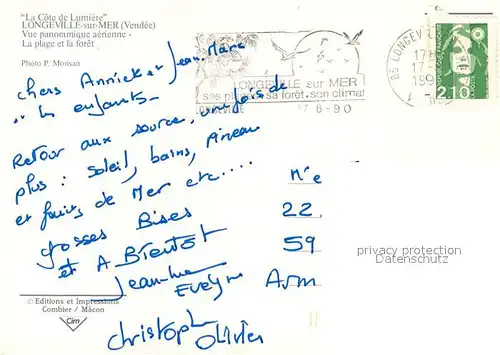 "La Côte de Lumière"
LONGEVILLE-sur-MER (Vendée)
Vue panoramique aérienne -
La plage et la forêt
Photo P. Morisan
chers Annick et Jean-Marc
.. les enfants -
Retour aux source, une fois de
plus : soleil, bains, Pineau
et fruits de Mer etc....
grosses Bises
et A Bientôt
Jean-Luc
Evelyne
Christophe
Olivier
Mre
22
59
Arm
LONGEVILLE sur MER
ses plages sa forêt son climat
LONGEVILLE 17-8-90
85 LONGEV
17
199
2,10
© Editions et Impressions
Combier / Mâcon
Cim
privacy protection
Datenschutz